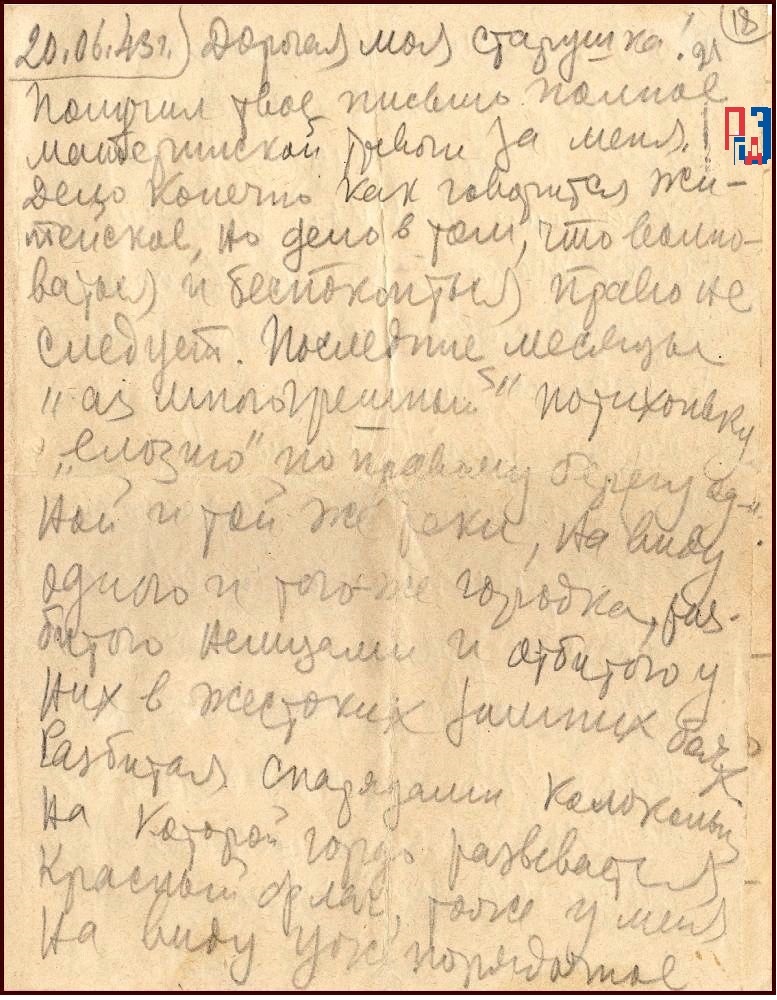 18
20.06.43г.) Дорогая моя старушка!
Получил твое письмо полное
материнской тревоги за меня.
Дело конечно как говорится жи-
тейское, но дело в том, что волно-
ваться и беспокоиться право не
следует. Последние месяцы
"аз многогрешный" потихоньку
"елозию" по правому берегу од-
ной и той же реки, на виду
одного и того-же городка, раз-
битого немцами и отбитого у
них в жестоких зимних боях
Разбитая снарядами колокольня
на которой гордо развевается
Красный флаг, тоже у меня
на виду уже порядочное